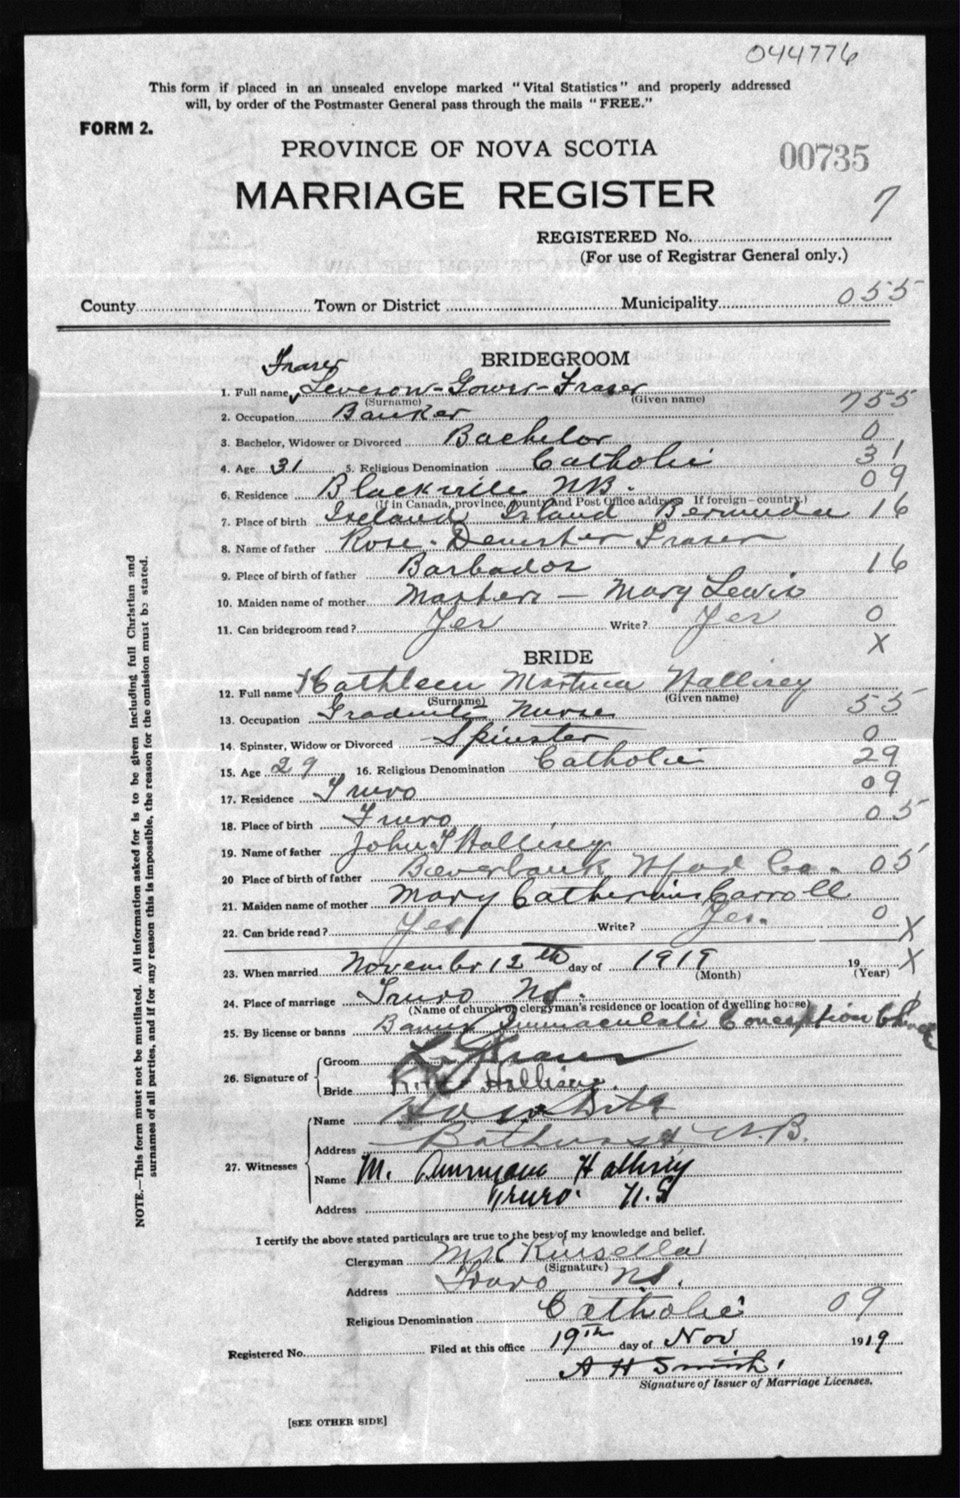 044776
This form if placed in an unsealed envelope marked "Vital Statistics" and properly addressed
will, by order of the Postmaster General pass through the mails "FREE."
FORM 2.
PROVINCE OF NOVA SCOTIA
00735
MARRIAGE REGISTER
7
REGISTERED No.
(For use of Registrar General only.)
County Town or District Municipality 055
BRIDEGROOM
Fraser
1. Full name Leveson-Gower-Fraser 755
(Surname) (Given name)
2. Occupation Banker
3. Bachelor, Widower or Divorced Bachelor 0
4. Age 31 5. Religious Denomination Catholic 31
6. Residence Blackville NB. 09
(If in Canada, province, county and Post Office address. If foreign—country.)
7. Place of birth Ireland Island Bermuda 16
8. Name of father Rose-Dempster Fraser
9. Place of birth of father Barbados 16
10. Maiden name of mother Masters — Mary Lewis
11. Can bridegroom read? Yes Write? Yes 0
X
BRIDE
12. Full name Kathleen Martina Hallisey
(Surname) (Given name)
13. Occupation Graduate Nurse 55
14. Spinster, Widow or Divorced Spinster 0
15. Age 29 16. Religious Denomination Catholic 29
17. Residence Truro 09
18. Place of birth Truro 05
19. Name of father John T Hallisey
20 Place of birth of father Beaverbank Hfax Co. 05
21. Maiden name of mother Mary Catherine Carroll
22. Can bride read? Yes Write? Yes. 0 X
23. When married November 12th day of 1919 19 X
(Month) (Year)
24. Place of marriage Truro NS.
(Name of church or clergyman's residence or location of dwelling house)
25. By license or banns Banns Immaculate Conception Church
26. Signature of
Groom Fraser
Bride Hallisey.
27. Witnesses
Name
Address Bathurst N.B.
Name M. Hallisey
Address Truro. N.S
I certify the above stated particulars are true to the best of my knowledge and belief.
Clergyman M K Kinsella
(Signature)
Address Truro NS.
Religious Denomination Catholic 09
Registered No. Filed at this office 19th day of Nov 1919
A H Smith
Signature of Issuer of Marriage Licenses.
[SEE OTHER SIDE]
NOTE.—This form must not be mutilated. All information asked for is to be given including full Christian and
surnames of all parties, and if for any reason this is impossible, the reason for the omission must be stated.